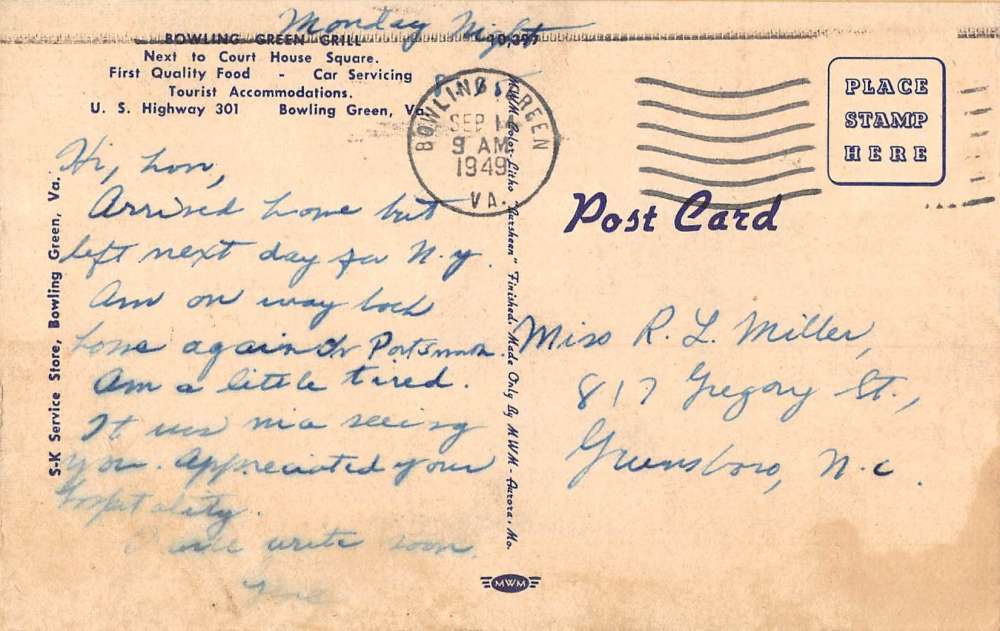 Monday Night
BOWLING GREEN GRILL
10,397
Next to Court House Square.
First Quality Food - Car Servicing
Tourist Accommodations.
U. S. Highway 301 Bowling Green, Va.
S-K Service Store, Bowling Green, Va.
Hi, Lon,
Arrived home but
left next day for N.Y.
Am on way back
home again
Am a little tired.
It was nice seeing
you. Appreciated your
Hospitality.
write soon.
BOWLING GREEN
SEP 14
9 AM
1949
VA.
MWM Color-Litho "Aursheen" Finished. Made Only By MWM - Aurora, Mo.
PLACE
STAMP
HERE
Post Card
Miss R. L. Miller,
817 Gregory St.,
Greensboro, N.C.
MWM